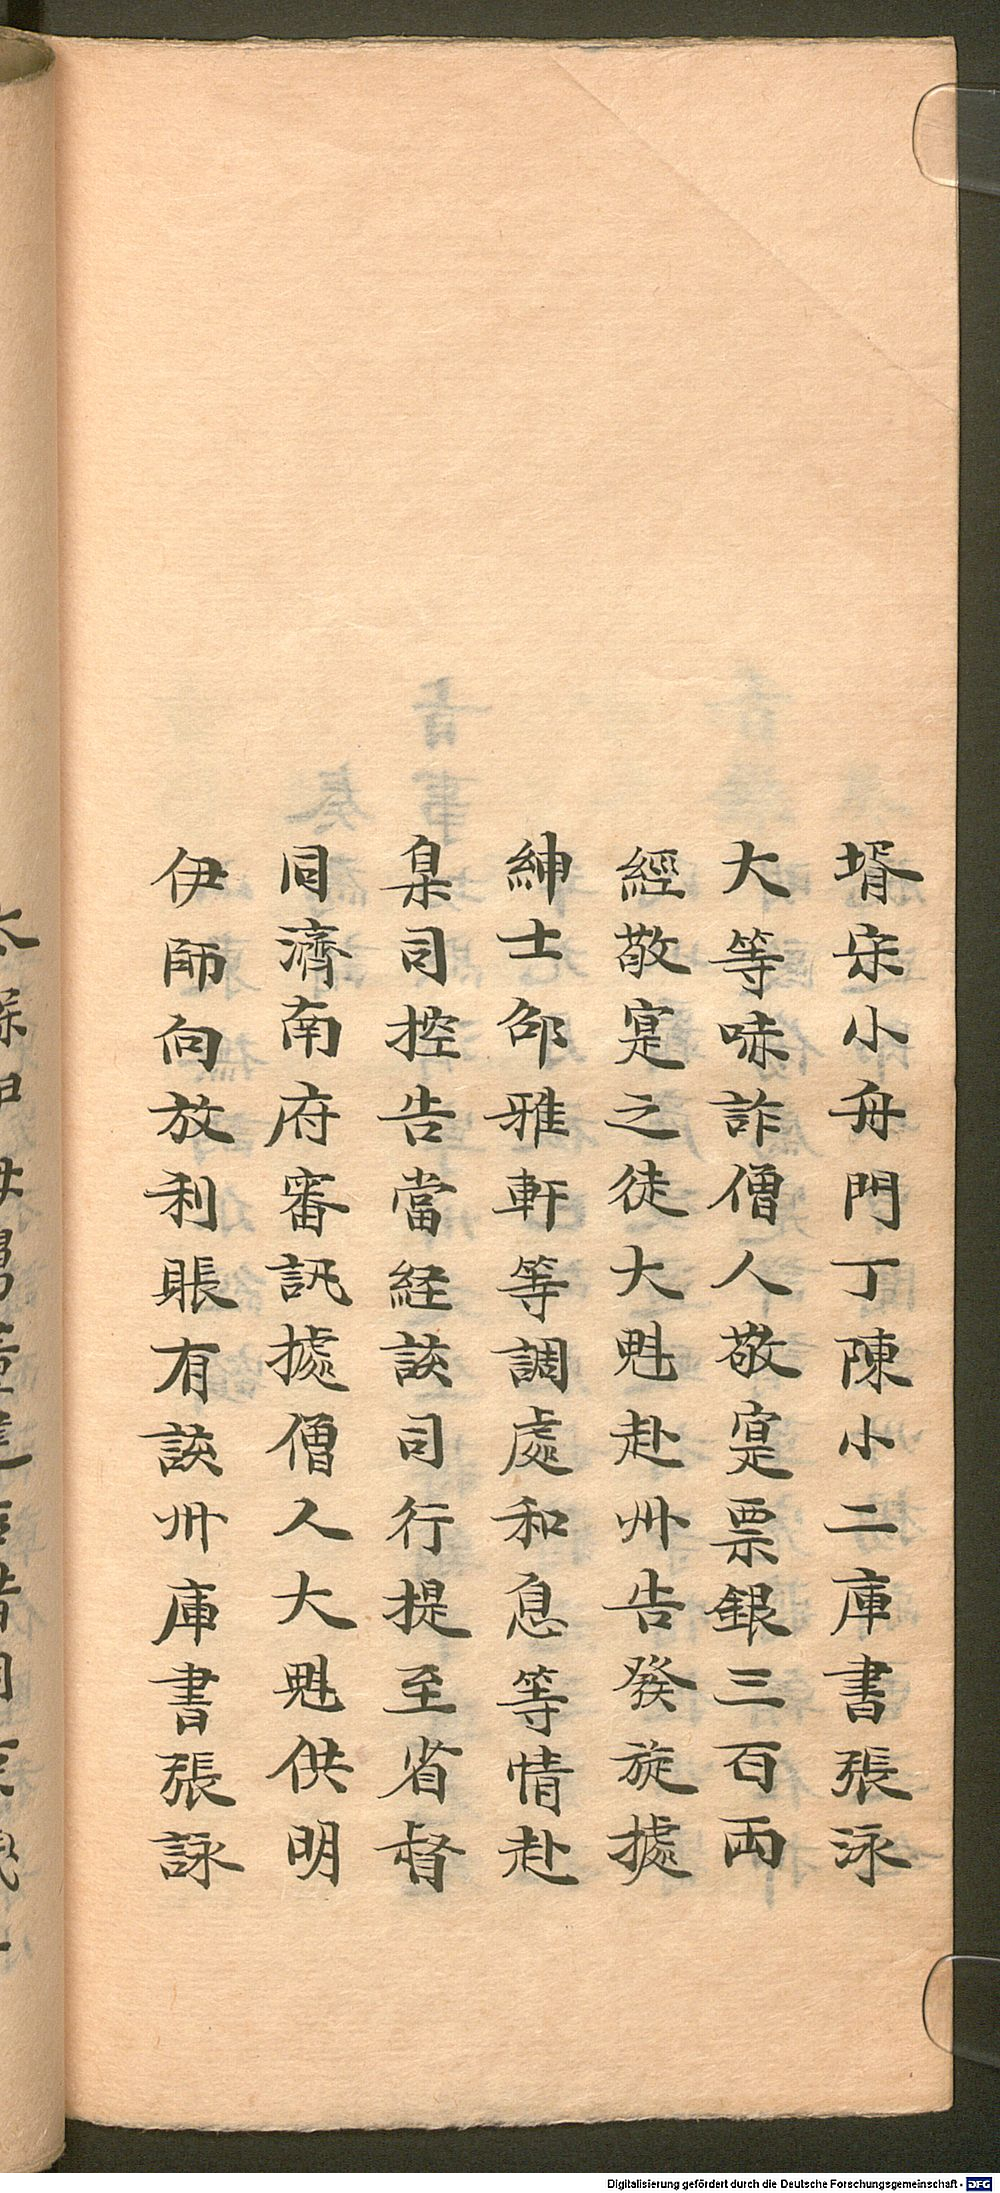 壻宋小舟門丁陳小二庫書張泳
大等唬詐僧人敬寔票銀三百両
經敬寔之徒大魁赴州告發旋據
紳士邵雅軒等調處和息等情赴
臬司控告當経該司行提至省督
同濟南府審訊據僧人大魁供明
伊師向放利賬有該州庫書張詠
Digitalisierung gefördert durch die Deutsche Forschungsgemeinschaft - DFG